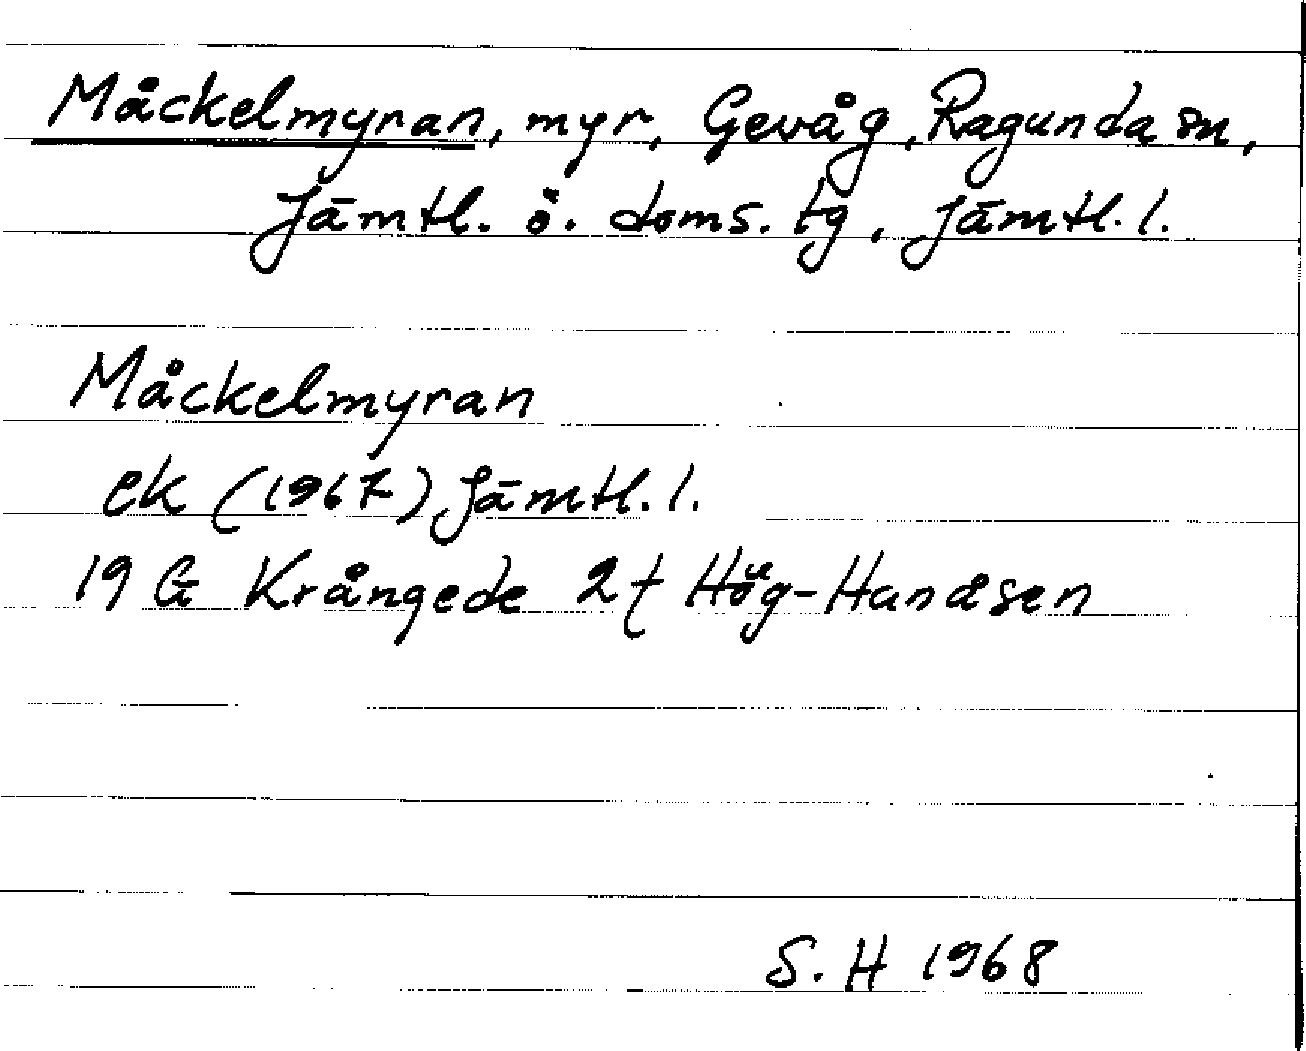 Måckelmyran, myr, Gevåg, Ragunda sn,
Jämtl. ö. doms. tg, Jämtl. l.
Måckelmyran
ek (1967) Jämtl. l.
19 G Krångede 2f Hög-Handsen
S. H 1968